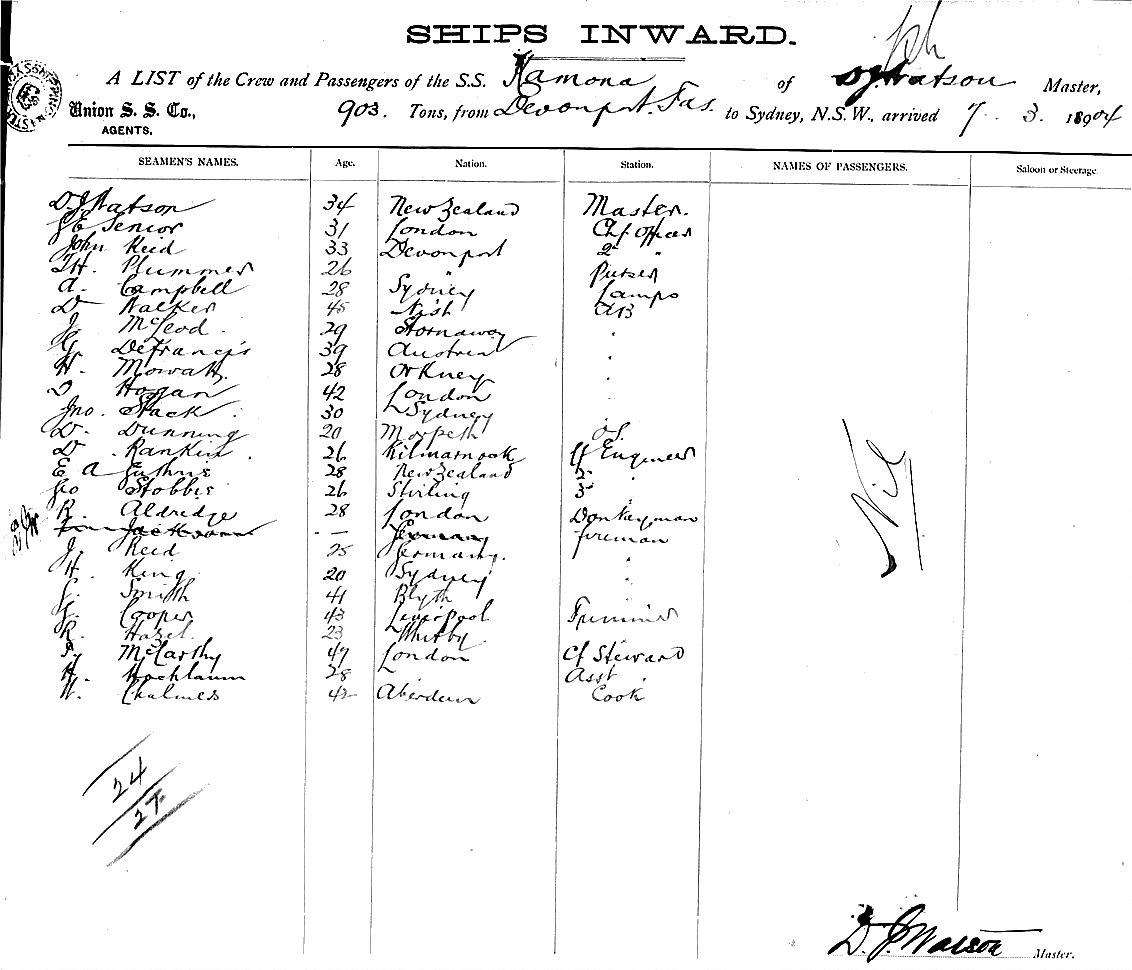 SHIPS INWARD.
A LIST of the Crew and Passengers of the S.S. Ramona of D J Watson Master,
Union S. S. Co., 903. Tons, from Devonport. Tas. to Sydney, N.S.W., arrived 7. 3. 1904
AGENTS.
SEAMEN'S NAMES. Age. Nation. Station. NAMES OF PASSENGERS. Saloon or Steerage.
D. J Watson 34 New Zealand Master.
E Senior 31 London Chf Officer
John Reid 33 Devonport 2 "
H. Plummer 26 " Purser
A. Campbell 28 Sydney Lamps
D Walker 45 AB
J. McLeod. 29 Stornaway "
G. DeFrancis 39 Austria "
H. Mowatt. 28 Orkney "
D Hogan 42 London
Jno. Stack. 30 Sydney
D. Dunning 20 Morpeth OS.
D Rankin. 26 Kilmarnock Cf Engineer
E A Guthrie 28 New Zealand 2
Geo Stobbie 26 Stirling 3 "
R. Aldredge 28 London Donkeyman
— German fireman
J. Reid 25 Germany. "
H. King 20 Sydney "
Smith 41 Blyth "
G. Cooper 43 Liverpool Trimmer
R. Hazel. 23 Whitby
McCarthy 47 London Cf Steward
H. Hochbaum 28 Asst
W. Chalmers 42 Aberdeen Cook
Nil
24
27
D. J Watson Master.